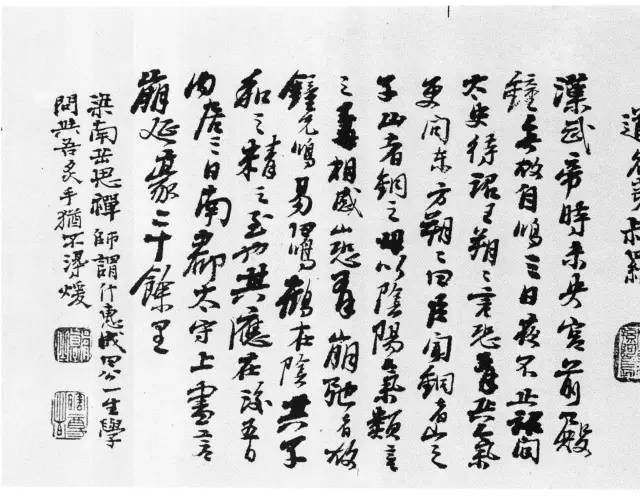 漢武帝時未央宮前殿
鐘無故自鳴三日夜不止詔問
太史待詔王朔〻言恐有兵氣
更問東方朔〻曰臣聞銅者山之
子山者銅之母以陰陽氣類言
之母相感山恐有崩弛者故
鐘先鳴易曰鳴鶴在陰其子
和之精之至也其應在後五日
內居三日南郡太守上書言
崩延袤二十餘里
梁南岳思禪師謂什惠成曰公一生學
問與吾炙手猶不得煖